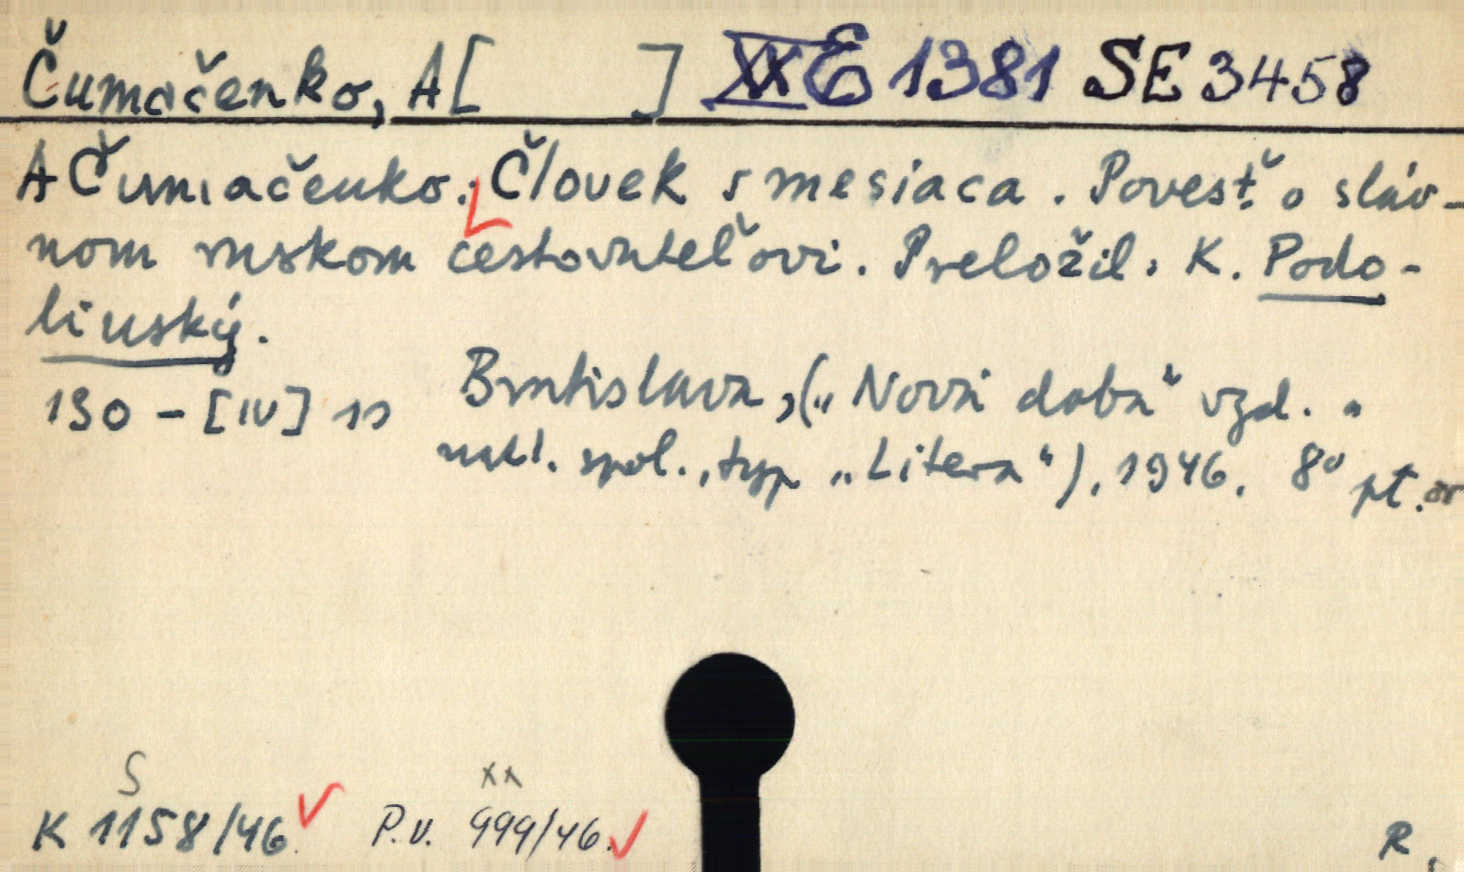 Čumačenko, A[ ] XXE 1381 SE 3458
A Čumačenko: Človek s mesiaca. Povesť o sláv-
nom ruskom cestovateľovi. Preložil: K. Podo-
linský.
Bratislava, („Nová doba“ vyd. a
130 - [IV] ss
nakl. spol., typ „Litera“), 1946. 8° pt.
S xx
K 1158/46. P.v. 999/46.
R.